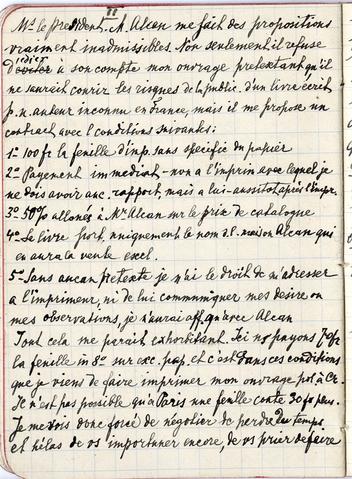 II
Mr. le président, M. Alcan me fait des propositions
vraiment inadmissibles. Non seulement il refuse
d'éditer à son compte mon ouvrage pretextant qu'il
ne saurait courir les risques de la public. d'un livre écrit
p. u. auteur inconnu en France, mais il me propose un
contract avec l. conditions suivantes:
1º 100 fr la feuille d'imp. sans specifié du papier
2º Payement immediat - non a l'imprim avec lequel je
ne dois avoir auc. rapport, mais a lui - aussitot après l'impr.
3º 50% allonés à Mr Alcan sur le prix de catalogue
4º Le livre port. uniquement le nom d. l. maison Alcan qui
en aura la vente excl.
5º Sans aucun pretexte je n'ai le droit de m'adresser
a l'imprimeur, ni de lui communiquer mes désirs ou
mes observations, je n'aurai aff. qu'avec Alcan
Tout cela me parait exhorbitant. Ici ns payons
la feuille in 8º sur exc. pap. et c'est dans ces conditions
que je viens de faire imprimer mon ouvrage
Il n'est pas possible qu'à Paris une feuille conte 30 fr plus.
Je me vois donc forcé de négotier de perdre du temps
et hélas de vs importuner encore, de vs prier de faire